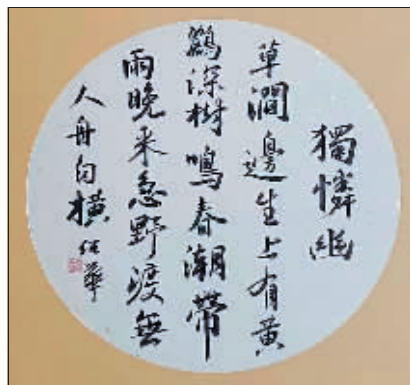 獨憐幽
草澗邊生上有黃
鸝深樹鳴春潮帶
雨晚来急野渡無
人舟自橫
華